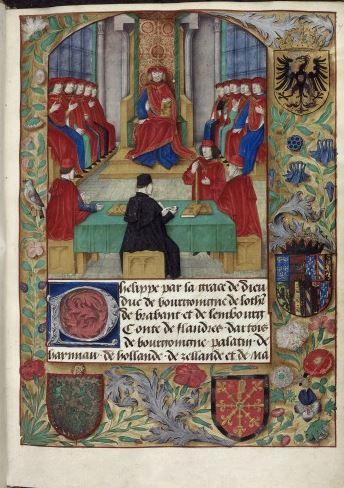 Phelippe par la grace de dieu
duc de bourgoingne de loth
de brabant et de lembourg
Conte de flandres dartois
de bourgoingne palatin de
haynnau de hollande de zellande et de na